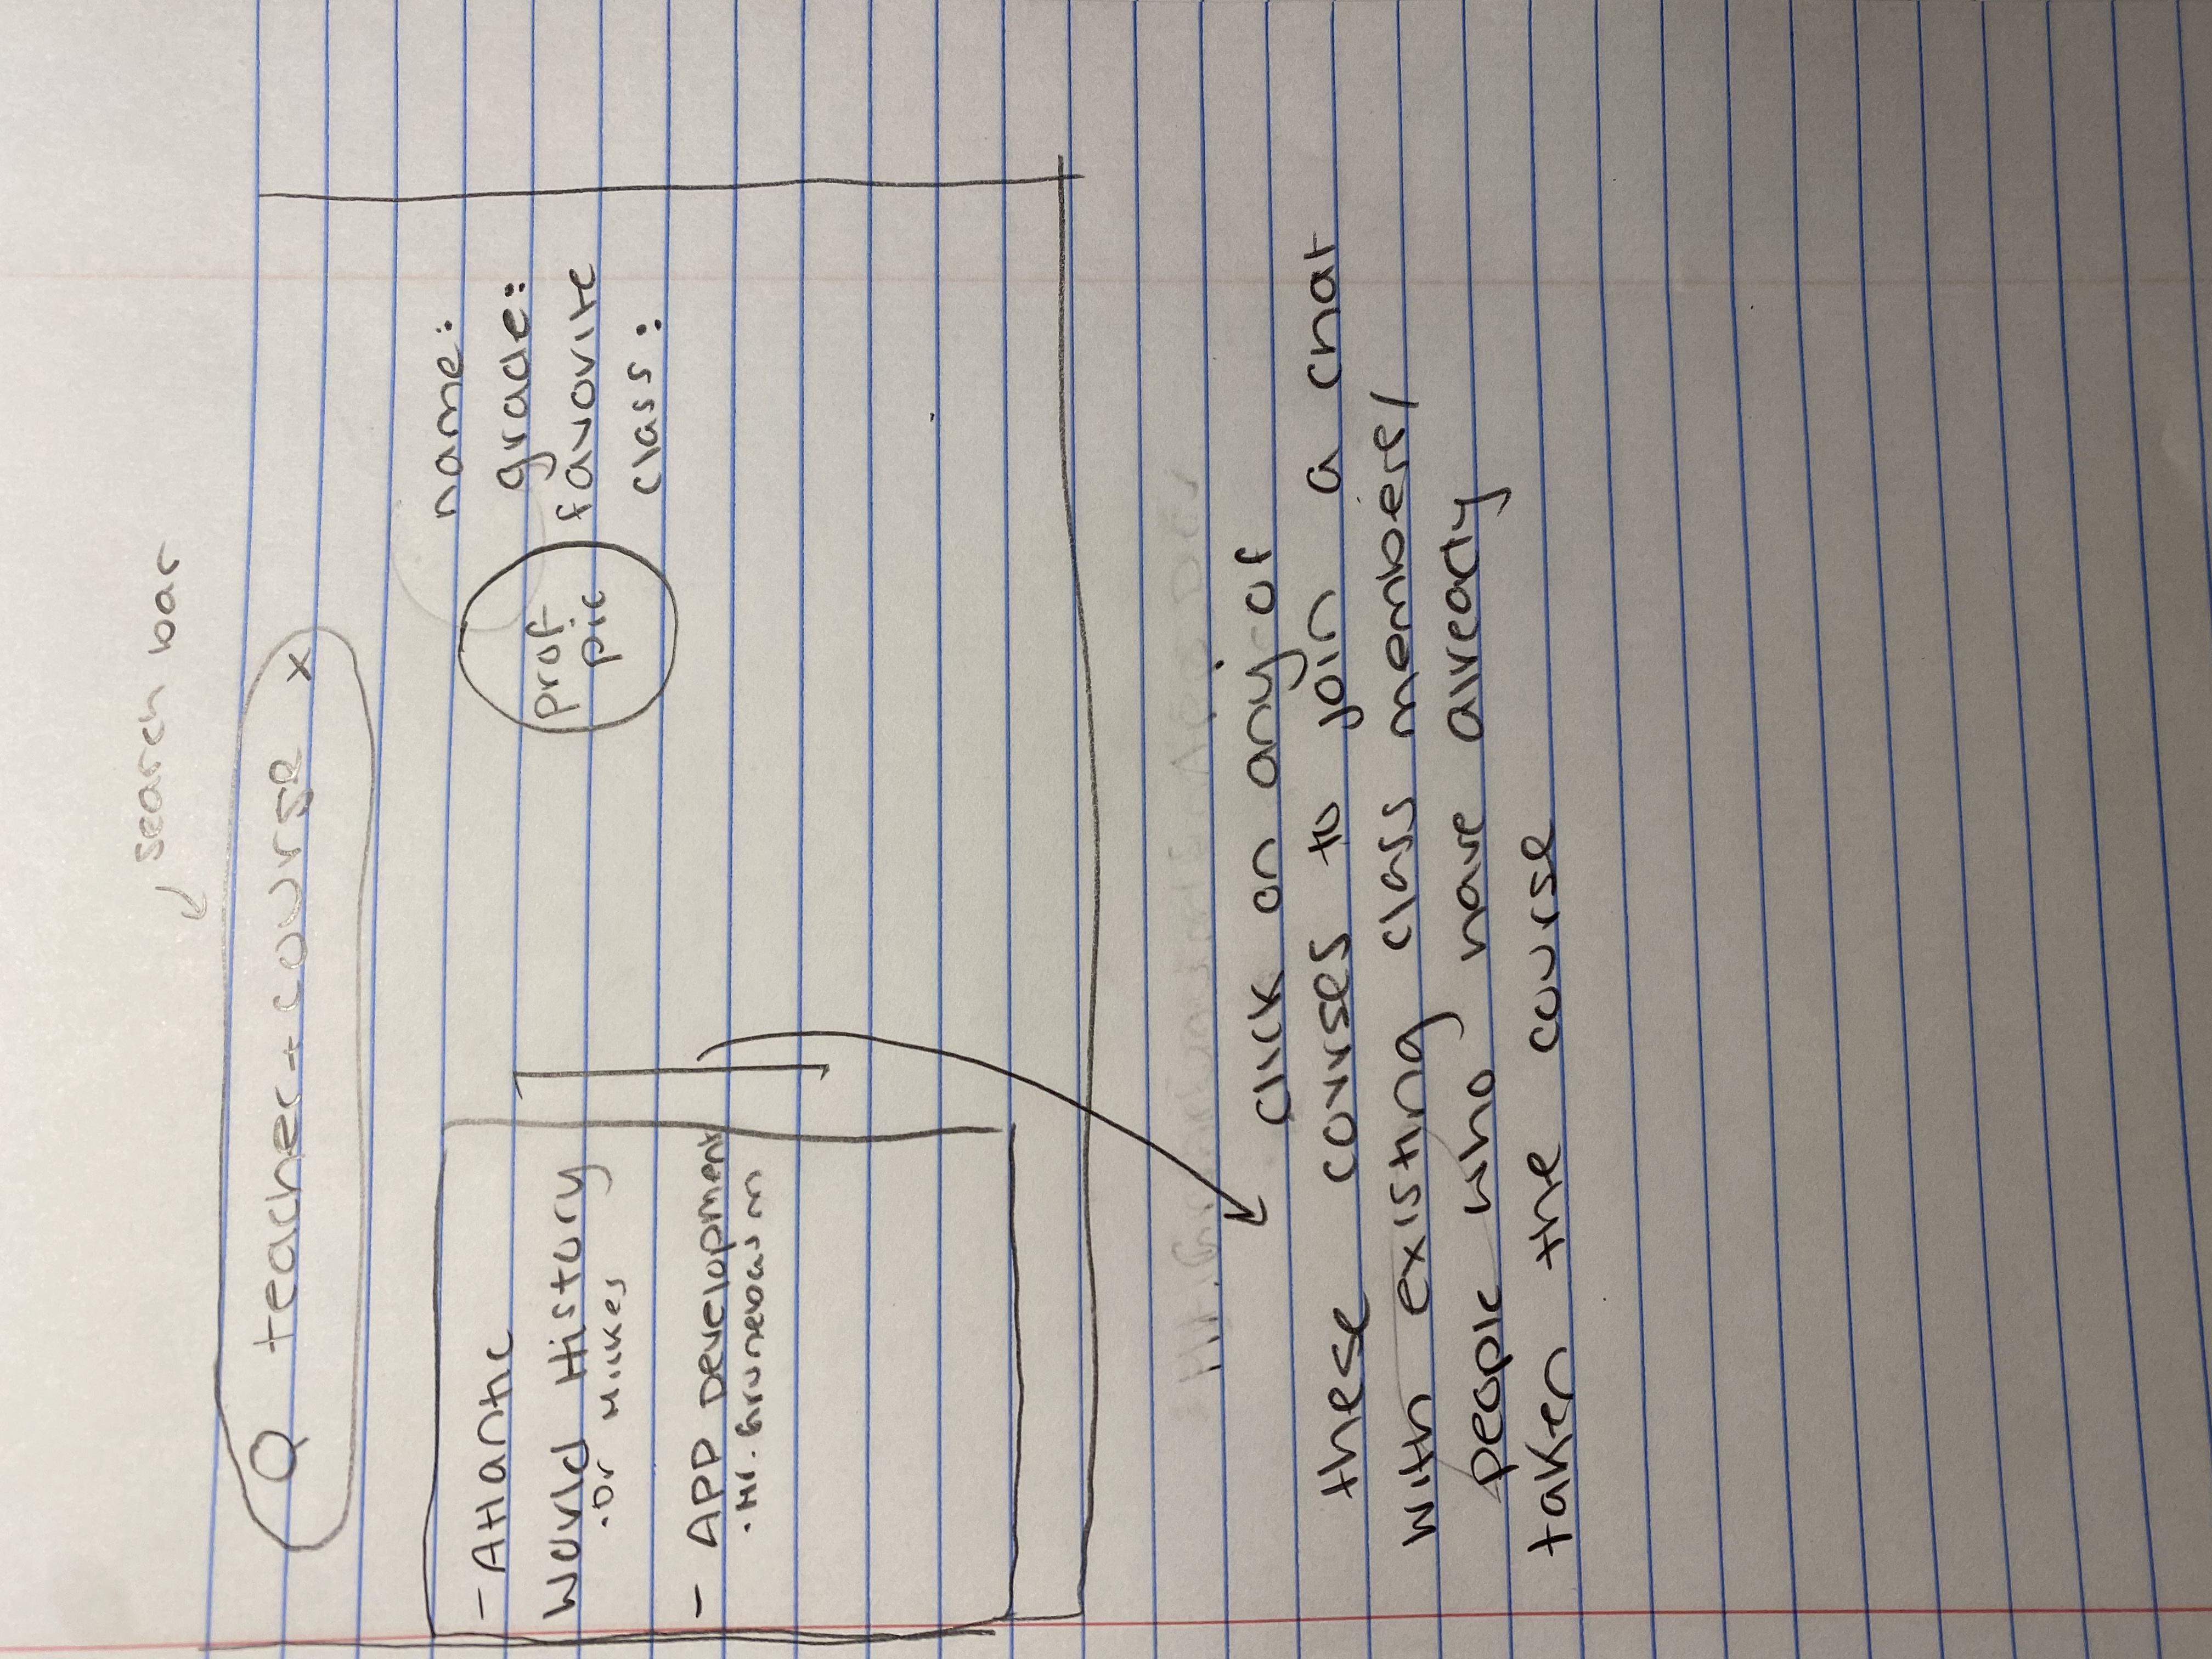 search bar
teacher + course x
- Atlantic
World History
• Dr
- APP Development
• Mr. Grunebaum
name:
grade:
prof
pic
favorite
class:
click on any of
these courses to join a chat
with existing class members/
people who have already
taken the course